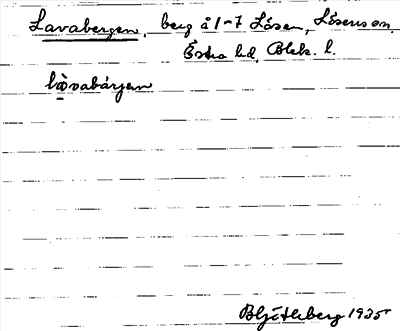 Lavabergen, berg å 1-7 Lösen, Lösens sn,
Östra hd, Blek. l.
lòvabárjen
Blj Ötleberg 1935